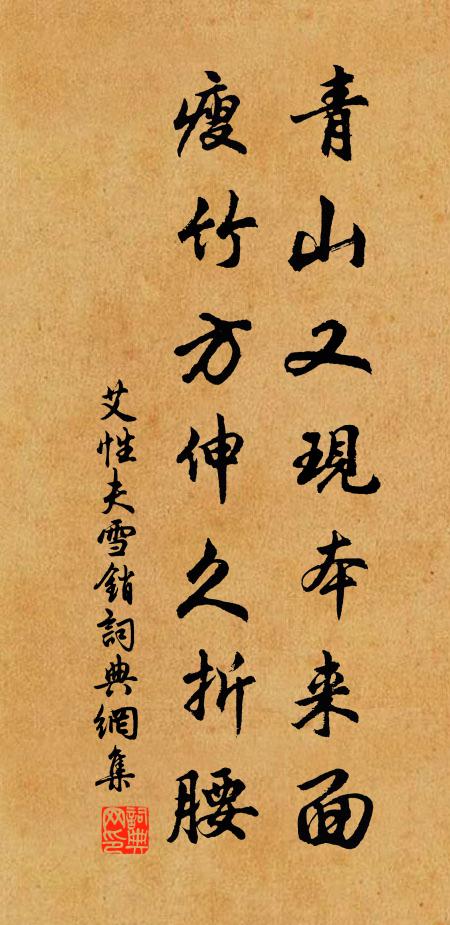 青山又現本来面
瘦竹方伸久折腰
艾性夫雪銷詞典網集
詞典网印